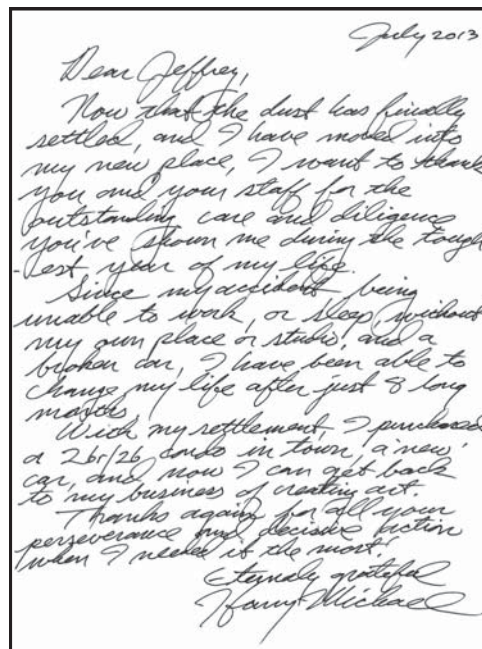 July 2013
Dear Jeffrey,
Now that the dust has finally
settled, and I have moved into
my new place, I want to thank
you and your staff for the
outstanding care and diligence
you've shown me during the tough
-est year of my life.
Since my accident, being
unable to work, or sleep, without
my own place or studio, and a
broken car, I have been able to
change my life after just 8 long
months.
With my settlement, I purchased
a 2br/2b condo in town, a new
car, and now I can get back
to my business of creating art.
Thanks again for all your
perseverance and decisive action
when I needed it the most!
Eternaly grateful
Harry Michael